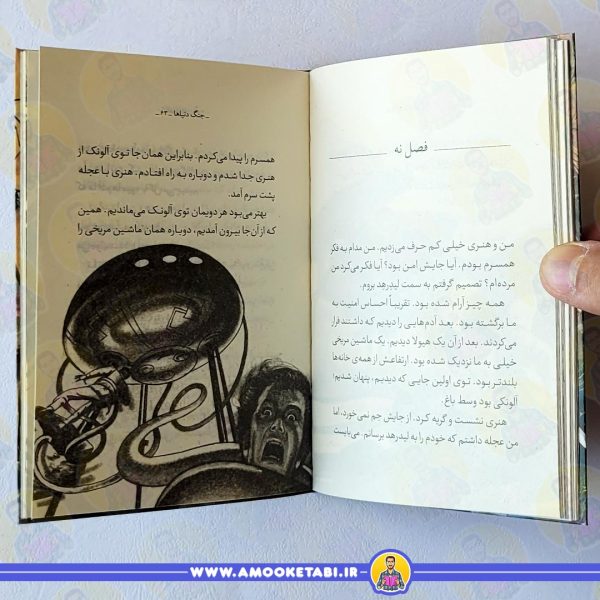 فصل نه
من و هنری خیلی کم حرف می‌زدیم. من مدام به فکر
همسرم بودم. آیا جایش امن بود؟ آیا فکر می‌کرد من
مرده‌ام؟ تصمیم گرفتم به سمت لیدرهد بروم.
همه چیز آرام شده بود. تقریباً احساس امنیت به
ما برگشته بود. بعد آدم‌هایی را دیدیم که داشتند فرار
می‌کردند. بعد از آن یک هیولا دیدیم. یک ماشین مریخی
خیلی به ما نزدیک شده بود. ارتفاعش از همه‌ی خانه‌ها
بلندتر بود. توی اولین جایی که دیدیم، پنهان شدیم؛
آلونکی بود وسط باغ.
هنری نشست و گریه کرد. از جایش جم نمی‌خورد، اما
من عجله داشتم که خودم را به لیدرهد برسانم. می‌بایست
ـ جنگ دنیاها ـ ۶۳ ـ
همسرم را پیدا می‌کردم. بنابراین همان جا توی آلونک از
هنری جدا شدم و دوباره به راه افتادم. هنری با عجله
پشت سرم آمد.
بهتر می‌بود هر دویمان توی آلونک می‌ماندیم. همین
که از آن جا بیرون آمدیم، دوباره همان ماشین مریخی را
WWW.AMOOKETABI.IR